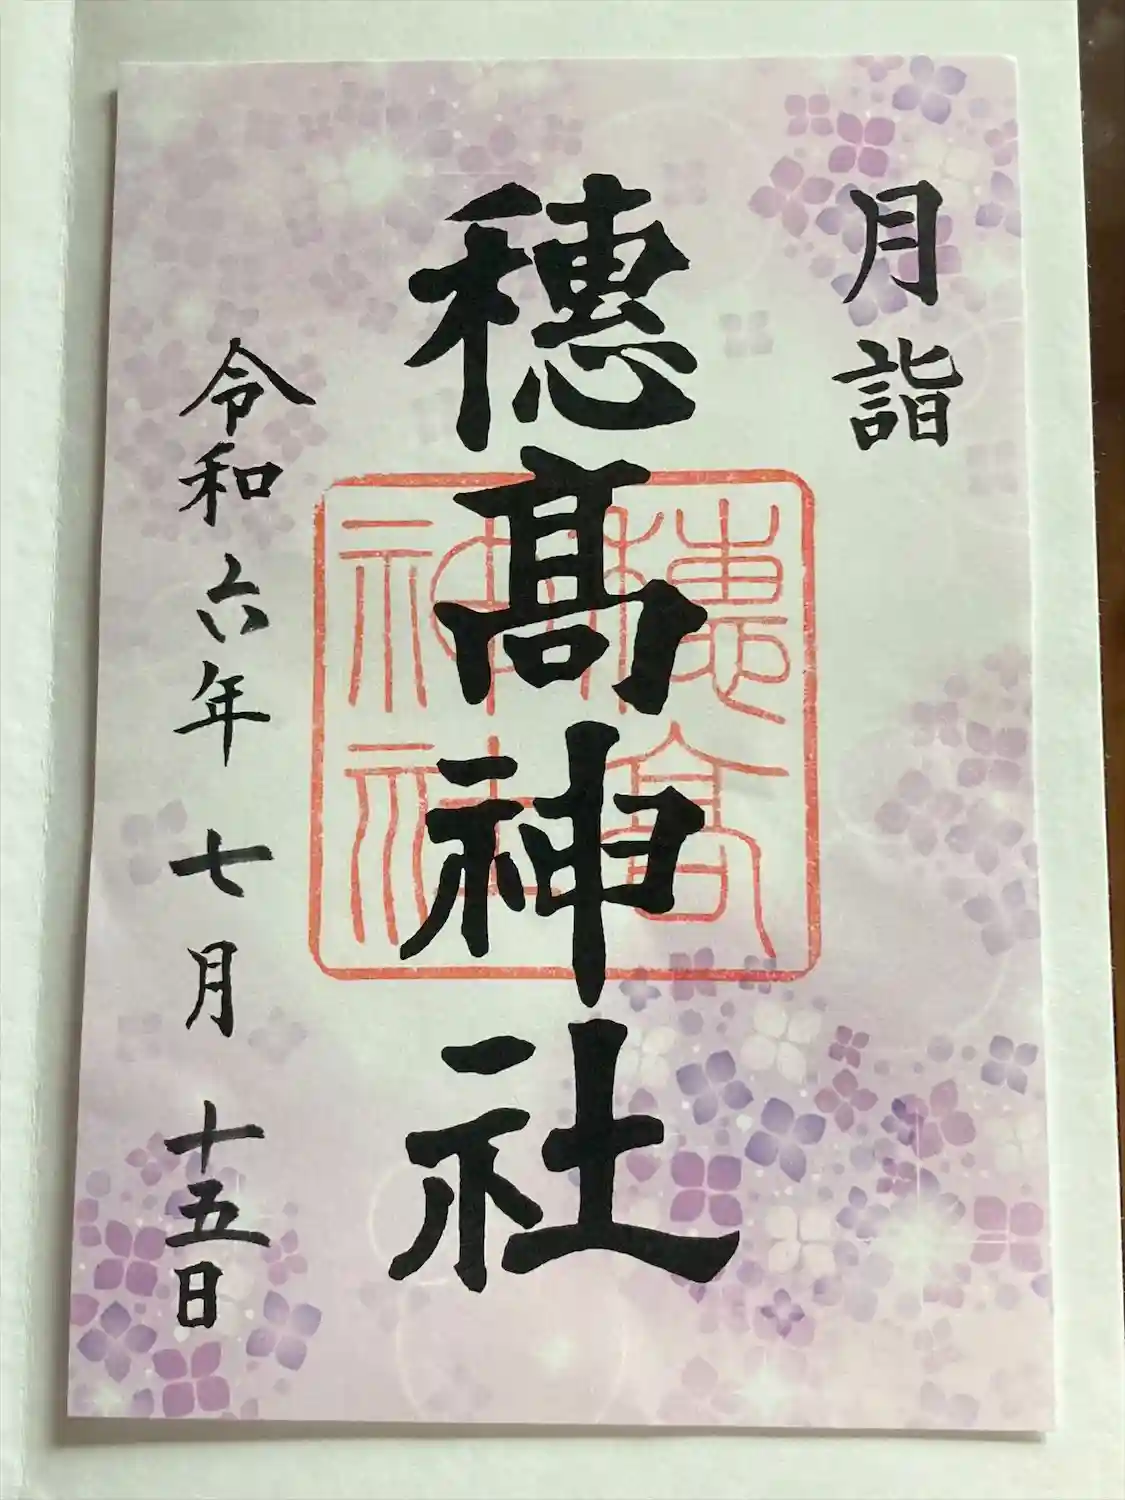 月詣
穂髙神社
穂高神社
令和六年七月十五日